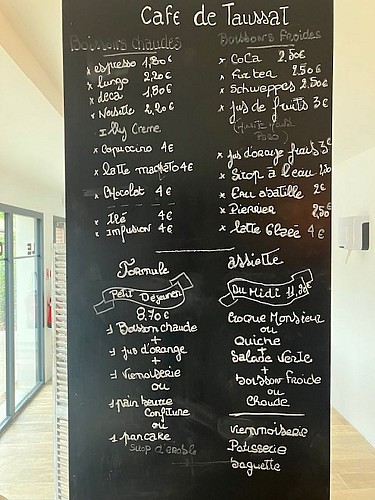 Cafe de Taussat
Boissons chaudes
* espresso 1,80€
* Lungo 2,20€
* deca 1,80€
* Noisette 2,20€
Illy Creme
* Capuccino 4€
* latte macchiato 4€
* Chocolat 4€
* Thé 4€
* Infusion 4€
Boissons Froides
* CoCa 2.50€
* Fuztea 2,50€
* Schweppes 2,50€
* jus de fruits 3€
* jus d'orange frais 3€
* Sirop à l'eau
* Eau abatille 2€
* Perrier 2,50€
* latte Glacé 4€
Formule
Petit Déjeuner
8.70€
1 Boisson chaude
+
1 jus d'orange
+
1 viennoiserie
ou
1 pain beurre
Confiture
ou
1 pancake
Sirop d'erable
assiette
Du Midi 11,90€
Croque Monsieur
ou
Quiche
+
Salade Verte
+
boisson Froide
ou
chaude
viennoiserie
Patisserie
baguette